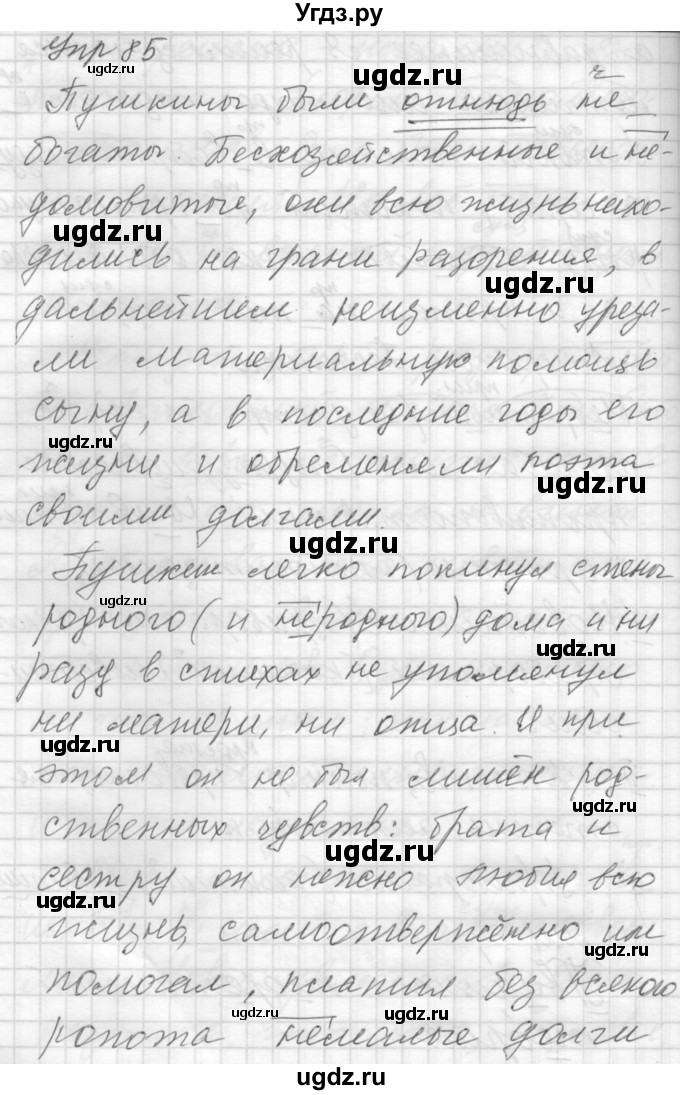 Угдз.ру
Упр 85
ugdz.ru
ugdz.ru
ч
Пушкины были отнюдь не
ugdz.ru
богаты. Бесхозяйственные и не-
домовитые, они всю жизнь нахо-
ugdz.ru
дились на грани разорения, в
ugdz.ru
дальнейшем неизменно уреза-
ли материальную помощь
ugdz.ru
сыну, а в последние годы его
ugdz.ru
жизни и обременяли поэта
ugdz.ru
своими долгами.
ugdz.ru
Пушкин легко покинул стены
ugdz.ru
родного (и неродного) дома и ни
ugdz.ru
разу в стихах не упомянул
ни матери, ни отца. И при
ugdz.ru
этом он не был лишён род-
ugdz.ru
ственных чувств: брата и
ugdz.ru
сестру он нежно любил всю
ugdz.ru
жизнь, самоотверженно им
ugdz.ru
помогал, платил без всякого
ugdz.ru
ugdz.ru
ропота немалые долги
ugdz.ru